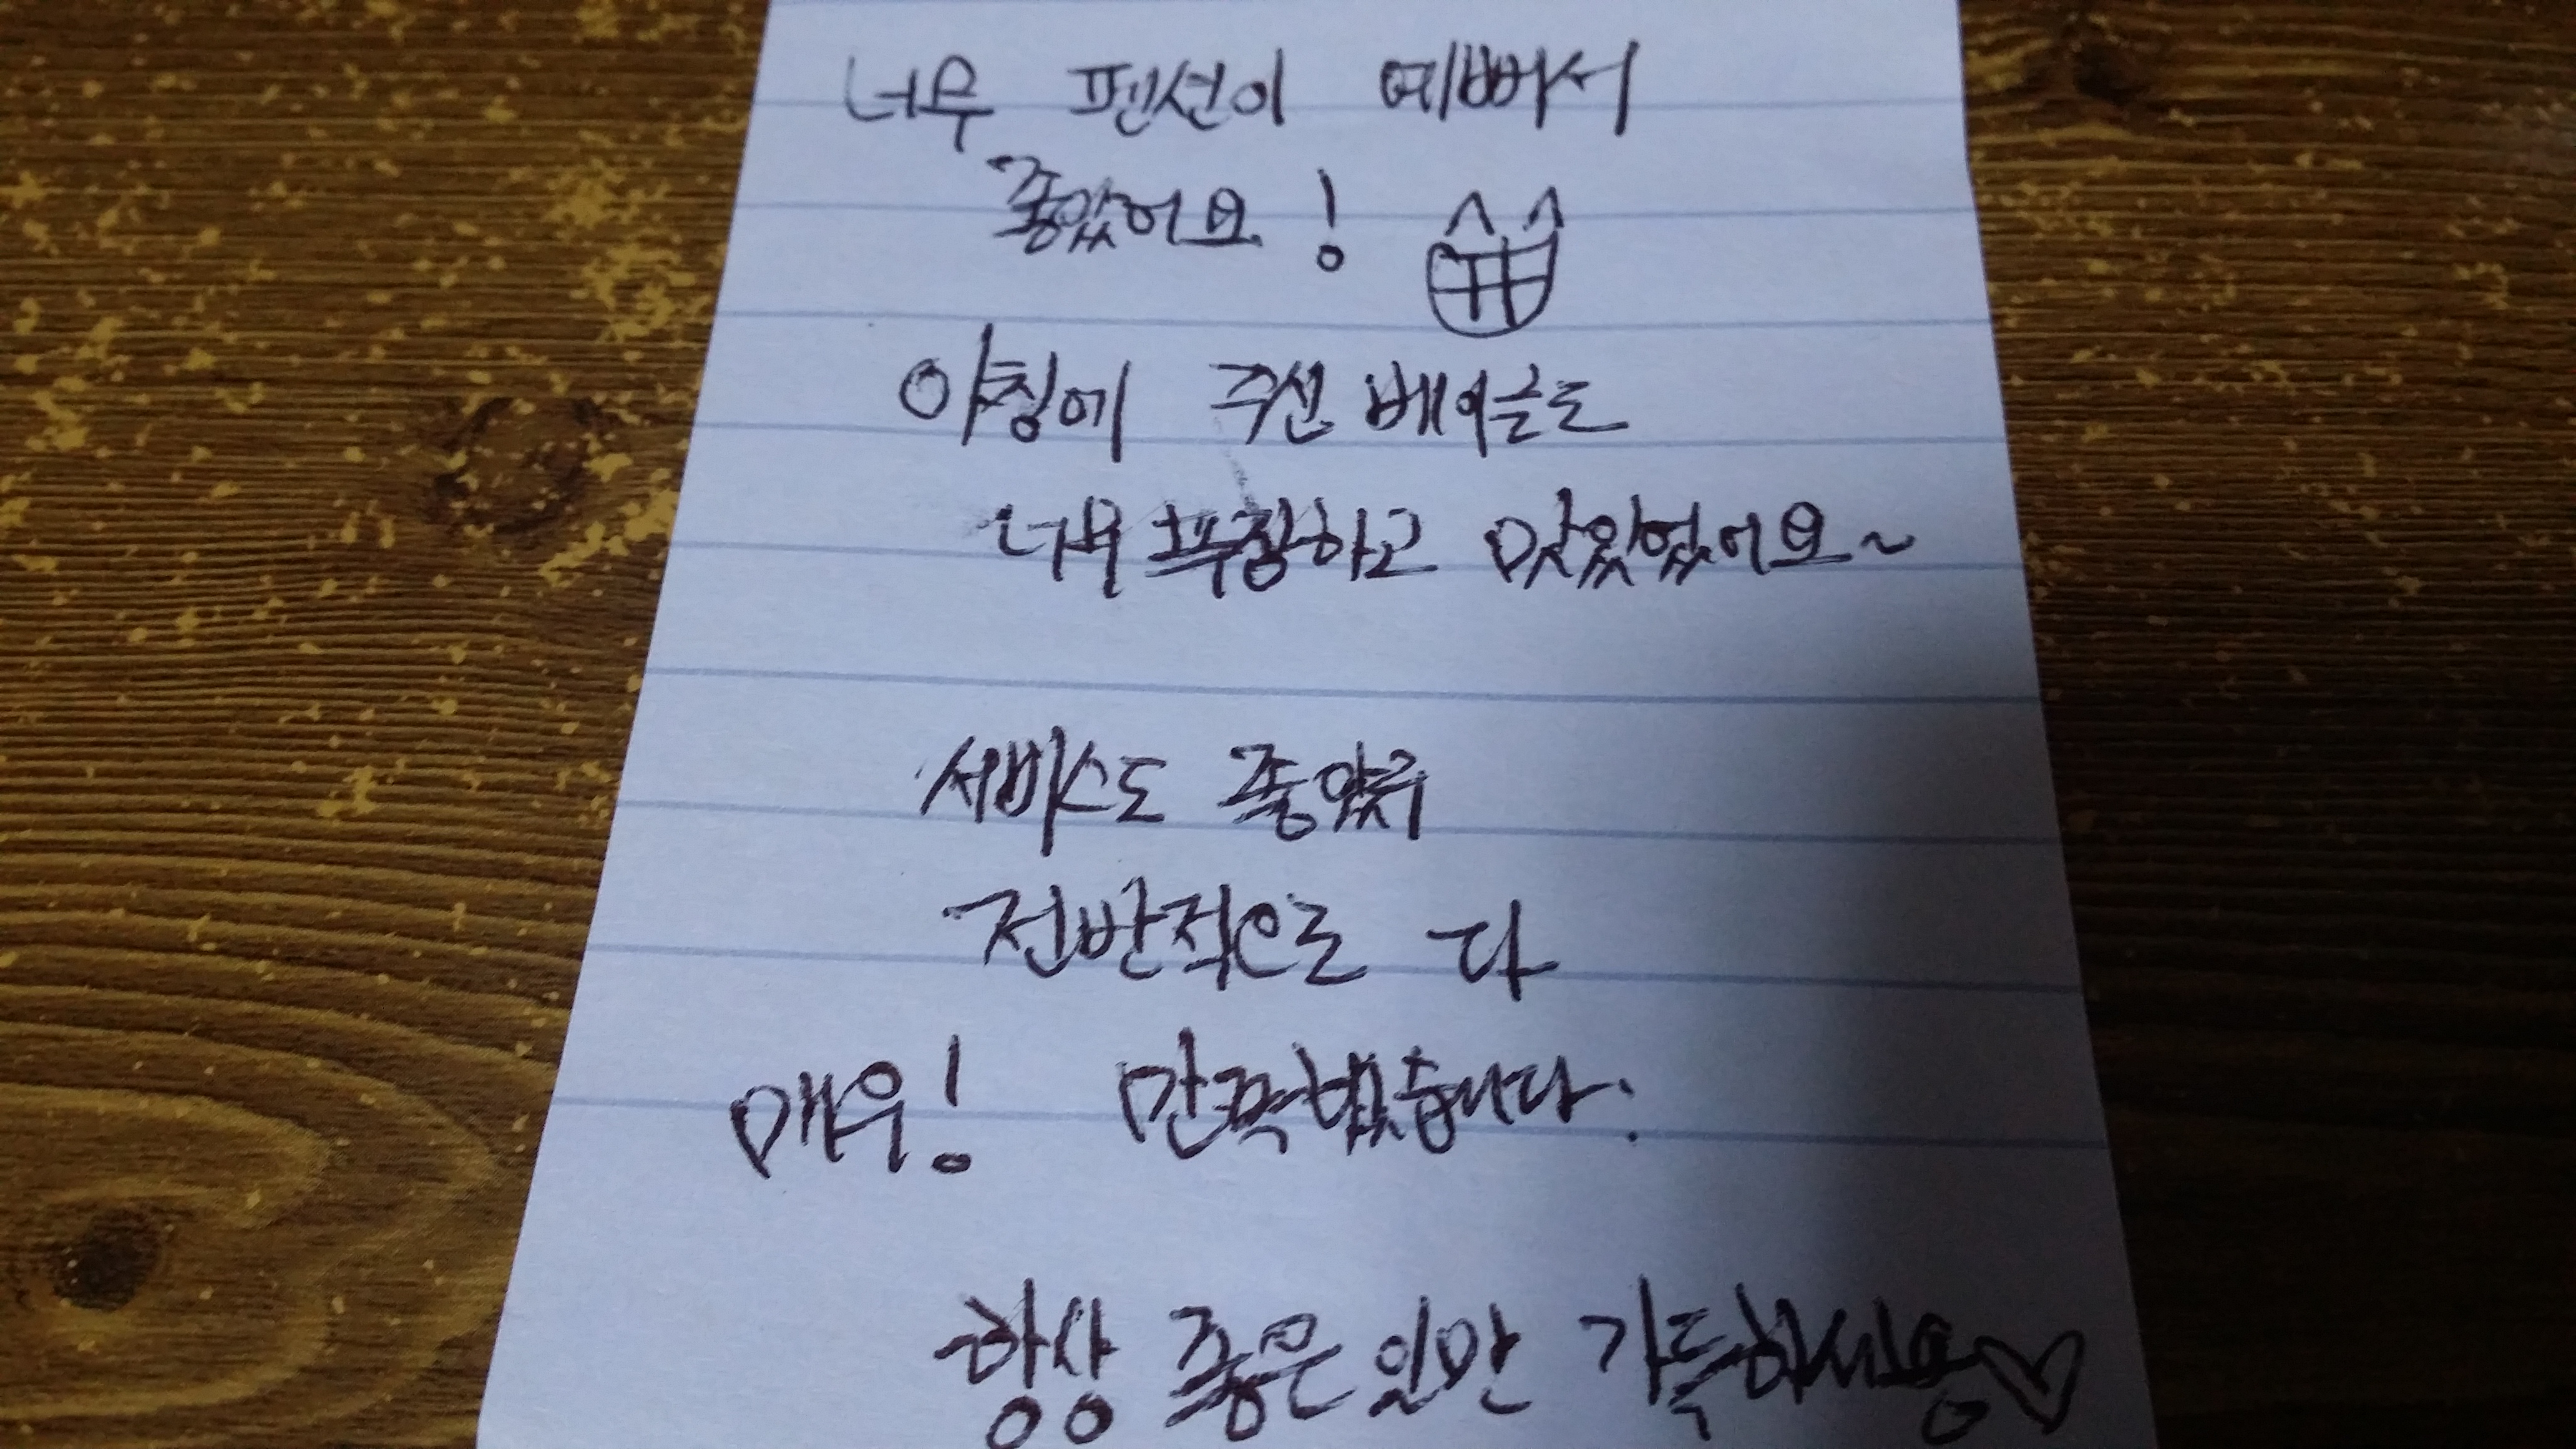 너무 펜션이 예뻐서
좋았어요!
아침에 주신 베이글도
너무 푸짐하고 맛있었어요~
서비스도 좋았구
전반적으로 다
매우! 만족했습니다.
항상 좋은 일만 가득하세용♡